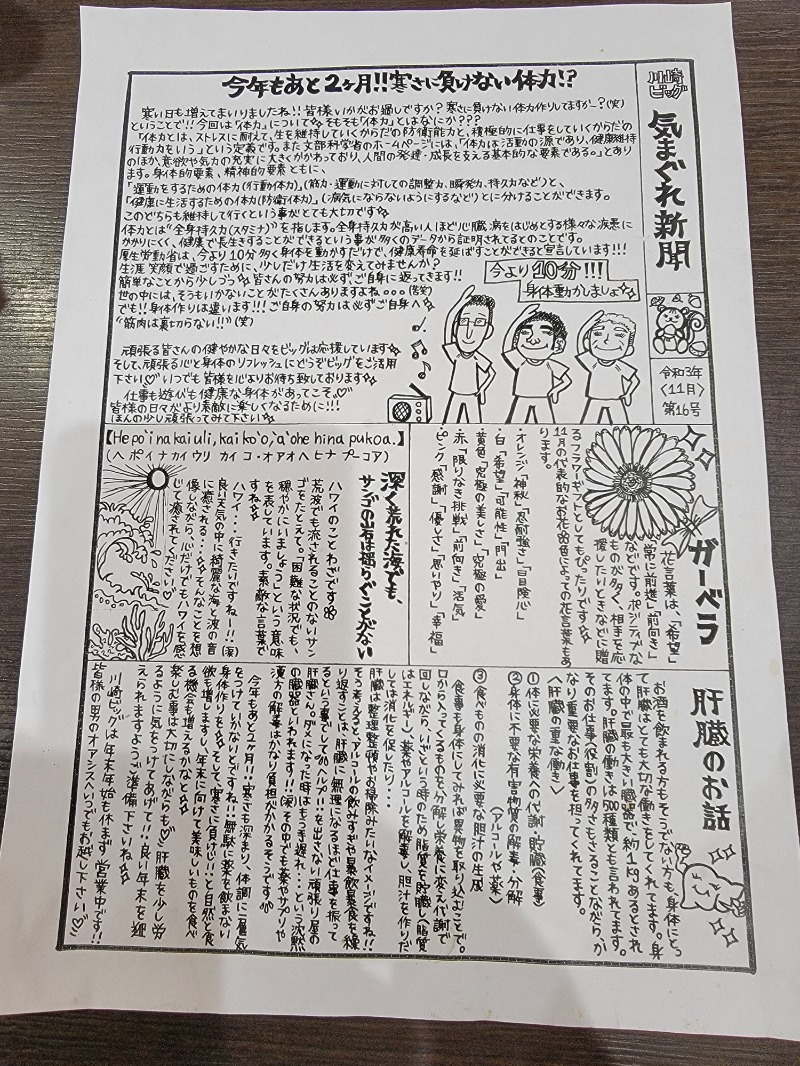 川崎
ビッグ
気まぐれ新聞
令和3年
〈11月〉
第16号
今年もあと2ヶ月!!寒さに負けない体力!?
寒い日も増えてまいりましたね!!皆様いかがお過しですか?寒さに負けない体力作りしてますか〜?(笑)
ということで!!今回は「体力」について☆そもそも「体力」とはなにか???
「体力とは、ストレスに耐えて、生を維持していくからだの防衛能力と、積極的に仕事をしていくからだの
行動力をいう」という定義です。また文部科学省のホームページには、「体力は活動の源であり、健康維持
のほか、意欲や気力の充実に大きくかかわっており、人間の発達・成長を支える基本的な要素である。」とあり
ます。身体的要素、精神的要素ともに、
「運動をするための体力(行動体力)」(筋力・運動に対しての調整力、瞬発力、持久力など)と、
「健康に生活するための体力(防衛体力)」(病気にならないようにするなど)とに分けることができます。
このどちらも維持して行くという事がとても大切です☆
体力とは"全身持久力(スタミナ)"を指します。全身持久力が高い人ほど心臓病をはじめとする様々な疾患に
かかりにくく、健康で長生きすることができるという事が多くのデータから証明されてるとのことです。
厚生労働省は、今より10分多く身体を動かすだけで、健康寿命を延ばすことができると宣言しています!!!
生涯笑顔で過ごすために、少しだけ生活を変えてみませんか?
簡単なことから少しづつ☆皆さんの努力は必ず、ご自身に返ってきます!!
世の中には、そうもいかないことがたくさんありますよね。。。(苦笑)
でも!!身体作りは違います!!!ご自身の努力は必ずご自身へ☆
"筋肉は裏切らない!!"(笑)
頑張る皆さんの健やかな日々をビッグは応援しています☆
そして、頑張る心と身体のリフレッシュにどうぞビッグをご活用
下さい♡いつでも皆様を心よりお待ち致しております☆
仕事も遊びも健康な身体があってこそ♡
皆様の日々がより素敵に楽しくなるために!!!
ほんの少し頑張ってみて下さい☆
今より10分!!!
身体動かしましょ☆
ガーベラ
花言葉は、「希望」
「常に前進」「前向き」
などです。ポジティブな
ものが多く、相手を応
援したいときなどに贈
るフラワーギフトとしてもぴったりです☆
11月の代表的なお花❀色によっての花言葉もあ
ります。
・オレンジ「神秘」「忍耐強さ」「冒険心」
・白「希望」「可能性」「門出」
・黄色「究極の美しさ」「究極の愛」
・赤「限りなき挑戦」「前向き」「活気」
・ピンク「感謝」「優しさ」「思いやり」「幸福」
【He poʻi na kai uli, kai koʻo, ʻaʻohe hina pukoa.】
(ヘ ポイナカイウリ カイ コ・オアオヘ ヒナ プーコア)
深く荒れた海でも、
サンゴの岩は揺らぐことがない
ハワイのことわざです❀
荒波でも流されることのないサン
ゴをたとえて。「困難な状況でも、
穏やかにいましょう」という意味
を表しています。素敵な言葉で
すね☆
ハワイ・・・行きたいですねー!!(涙)
良い天気の中に綺麗な海と波の音
に癒される・・・☆そんなことを想
像しながら、心だけでもハワイを感
じて癒されてください♡
肝臓のお話
お酒を飲まれる方もそうでない方も、身体にとっ
て肝臓はとても大切な働きをしてくれてます。身
体の中で最も大きい臓器で、約1kgあるとされ
てます。肝臓の働きは500種類とも言われてます。
そのお仕事(役割)の多さもさることながらか
なり重要なお仕事を担ってくれてます。
〈肝臓の重な働き〉
①体に必要な栄養への代謝・貯臓(食事)
②身体に不要な有害物質の解毒・分解
(アルコールや薬)
③食べものの消化に必要な胆汁の生成
食事も身体にしてみれば異物を取り込むことで。
口から入ってくるものを分解し栄養に変え代謝で
回しながら、いざという時のため脂質を貯臓し脂質
はエネルギー、薬やアルコールを解毒し、胆汁を作りだ
しては消化を促したり・・・
肝臓は整理整頓やお掃除みたいなイメージですね!!
そう考えると、アルコールの飲みすぎや暴飲暴食を繰
り返すことは、肝臓に無理になるほど仕事を振って
るという事でして%ヘルプ!!を出さない頑張り屋の
肝臓さん。ダメになった時はもう手遅れ・・という沈黙
の臓器といわれます!!(涙)その中でも薬やサプリや
漢方の解毒はかなり負担がかかるそうです%
今年もあと2ヶ月!!寒さも深まり、体調に一層気
をつけていかないとですね!!無駄に薬を飲まない
身体作りを☆そして、寒さに負けじ!!と自然と食
欲も増しますし、年末に向けて美味しいものを食べ
る機会も増えるかなと☆
楽しむ事は大切にしながらも♡肝臓を少し労
るように気をつけてあげて!!良い年末を迎
えられますようご準備下さいね☆
川崎ビッグは年末年始も休まず営業中です!!
皆様の男のオアシスへいつでもお越し下さい♡